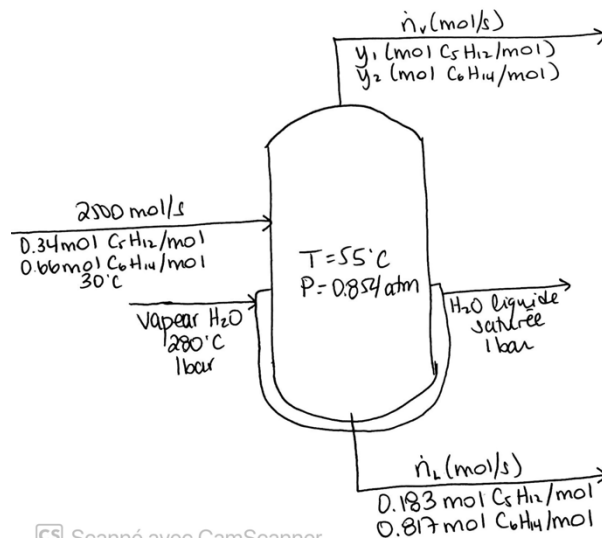 ṅᵥ (mol/s)
y₁ (mol C₅H₁₂/mol)
y₂ (mol C₆H₁₄/mol)
2500 mol/s
0.34 mol C₅H₁₂/mol
0.66 mol C₆H₁₄/mol
30°C
T = 55°C
P = 0.854 atm
vapear H₂O
280°C
1bar
H₂O liquide
saturée
1 bar
ṅ_L (mol/s)
0.183 mol C₅H₁₂/mol
0.817 mol C₆H₁₄/mol
CS Scanné avec CamScanner